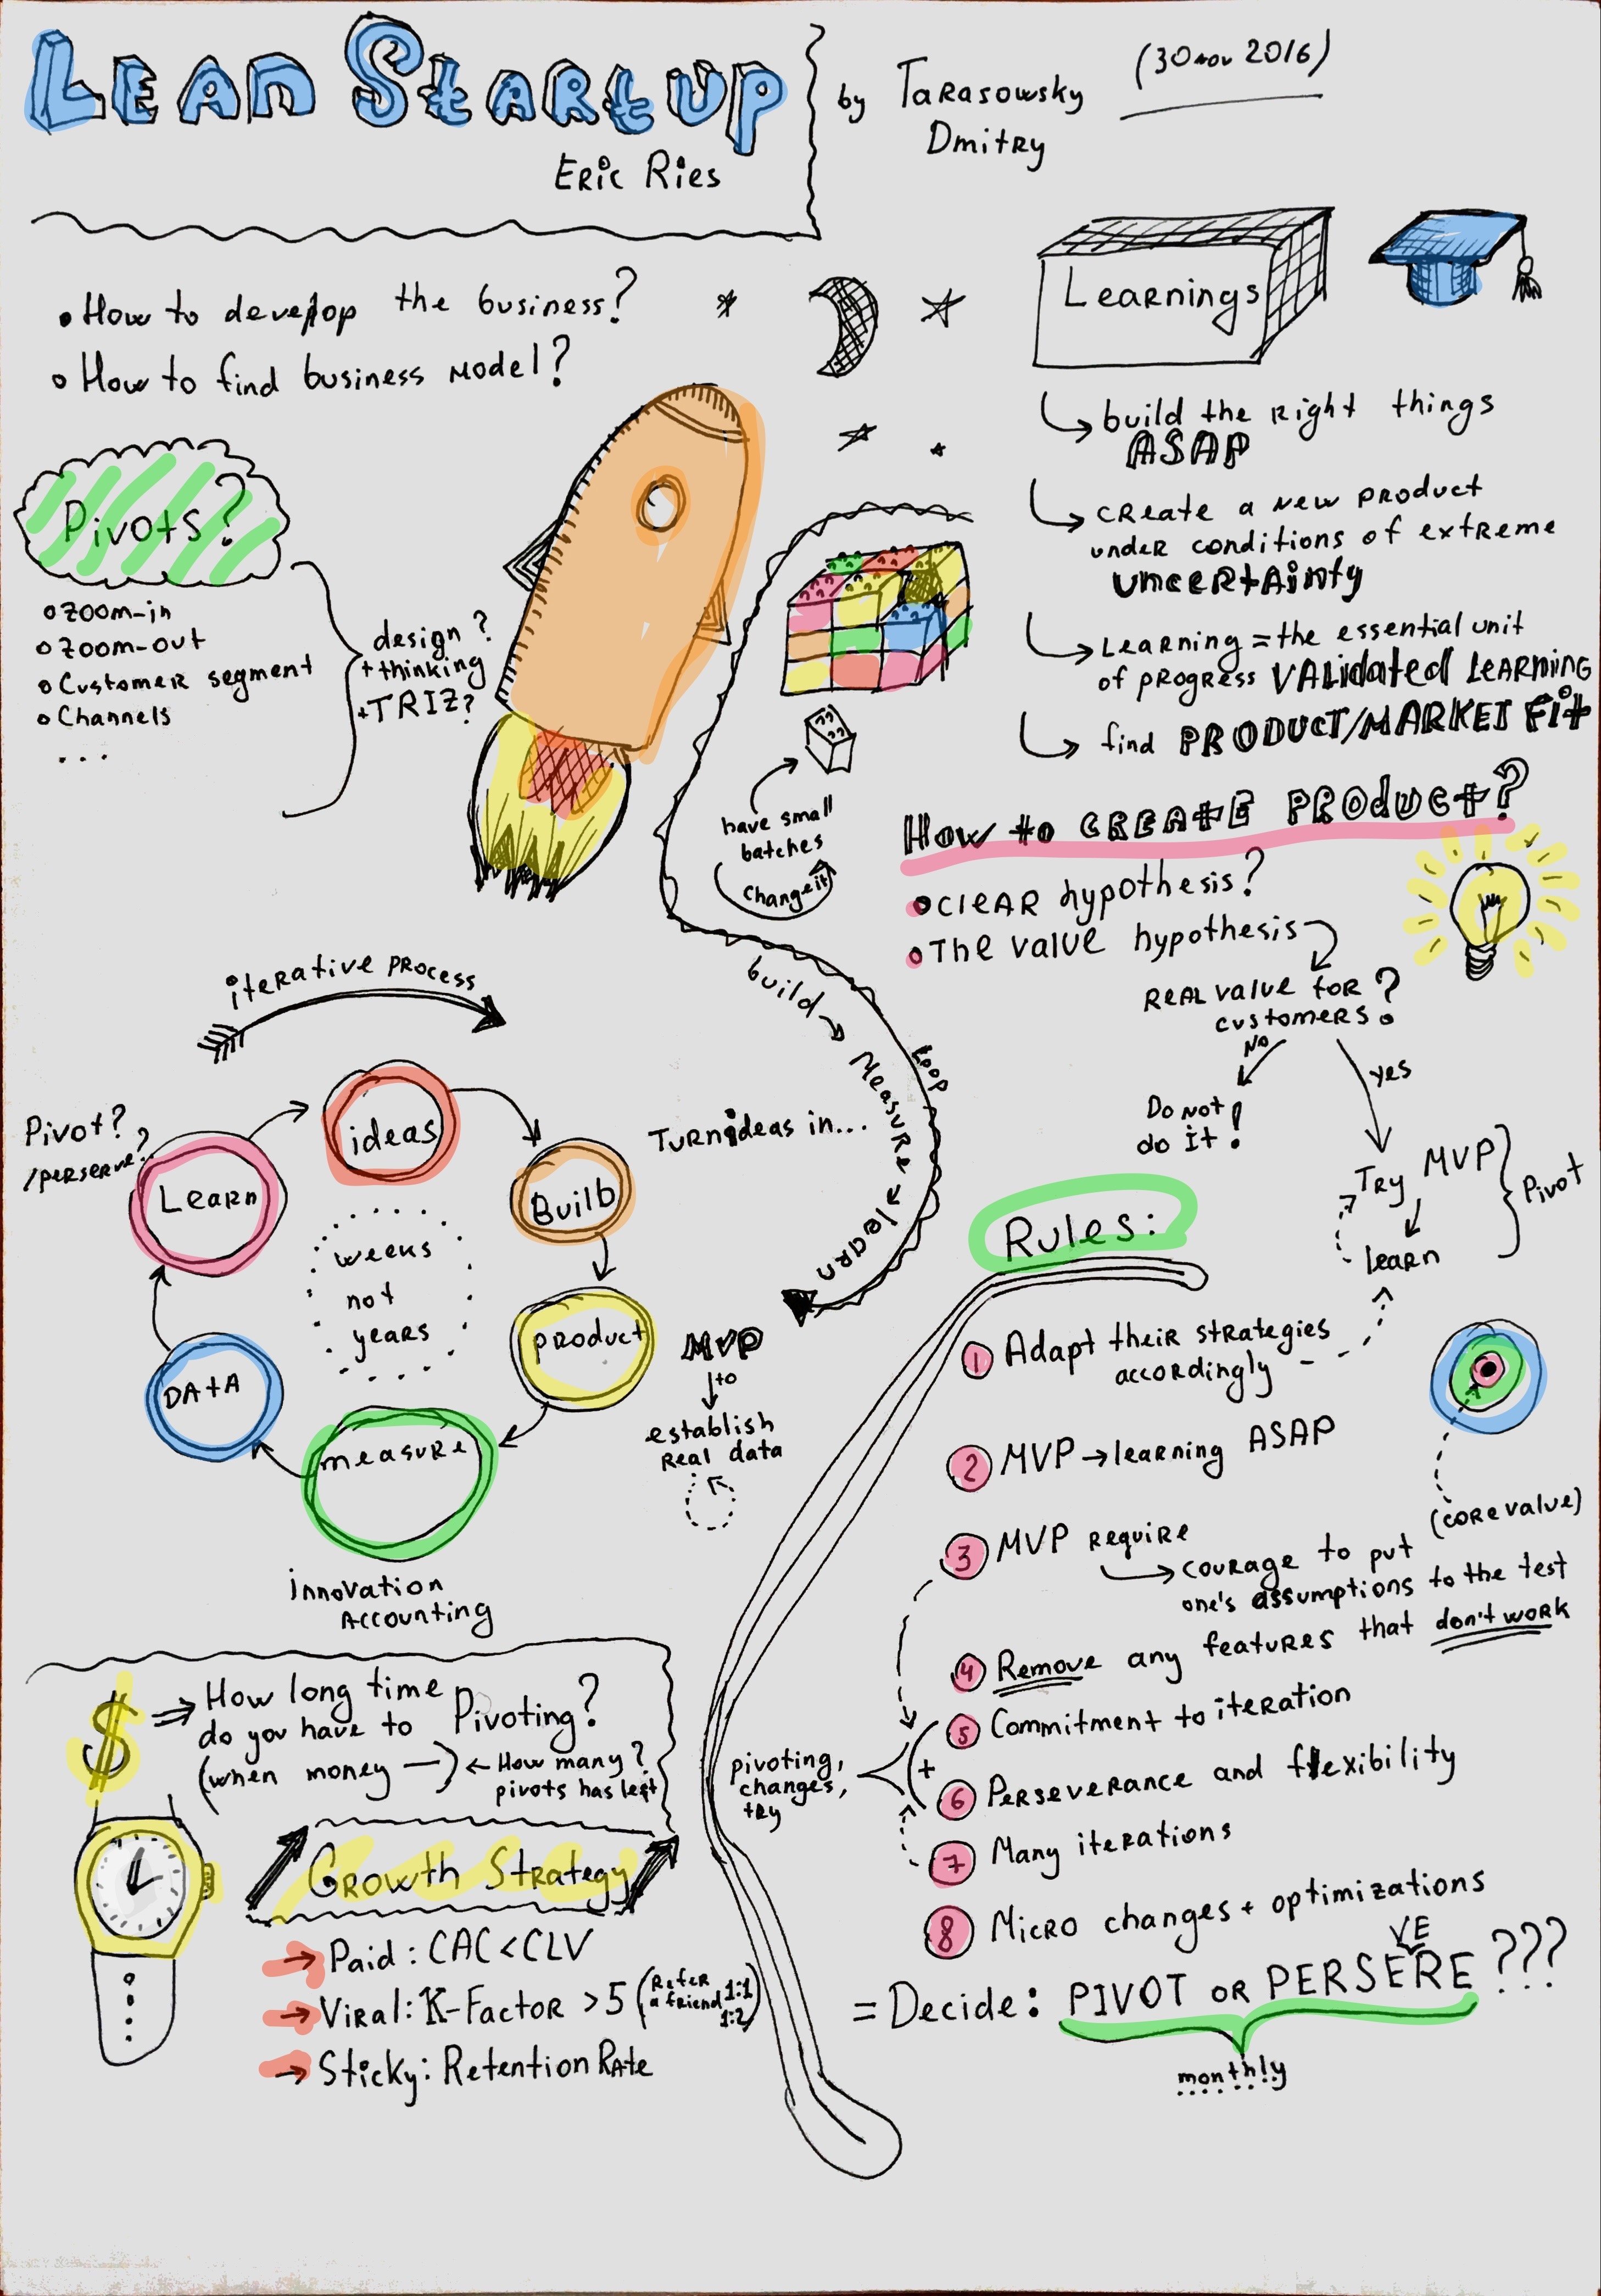 LEAN STARTUP
Eric Ries
by Tarasowsky
Dmitry
(30 nov 2016)
• How to develop the business?
• How to find business model?
Pivots?
Zoom-in
Zoom-out
Customer segment
Channels
...
design?
+ thinking
+ TRIZ?
Learnings
build the right things
ASAP
create a new product
under conditions of extreme
uncertainty
Learning = the essential unit
of progress VALidated LEARNING
find PRODUCT/MARKET Fit
have small
batches
Change it
How to CREATE PRODuct?
Clear hypothesis?
The value hypothesis
Real value for
customers?
No
yes
Do not
do it!
Try MVP
learn
Pivot
build → Measure → learn
Loop
iterative process
Pivot?
/perserve?
ideas
Builb
product
measure
DAtA
Learn
weeks
not
years
Turn ideas in...
MVP
to
establish
Real data
innovation
Accounting
Rules:
1 Adapt their strategies
accordingly
2 MVP → learning ASAP
(core value)
3 MVP require
→ courage to put
one's assumptions to the test
4 Remove any features that don't work
5 Commitment to iteration
+
6 Perseverance and flexibility
7 Many iterations
8 Micro changes + optimizations
pivoting,
changes,
try
= Decide: PIVOT or PERSERE ???
VE
monthly
$ ⇒ How long time
do you have to Pivoting?
(when money —) ← How many?
pivots has left
Growth Strategy
→ Paid: CAC < CLV
→ Viral: K-Factor > 5 (Refer
a friend 1:1
1:2)
→ Sticky: Retention Rate